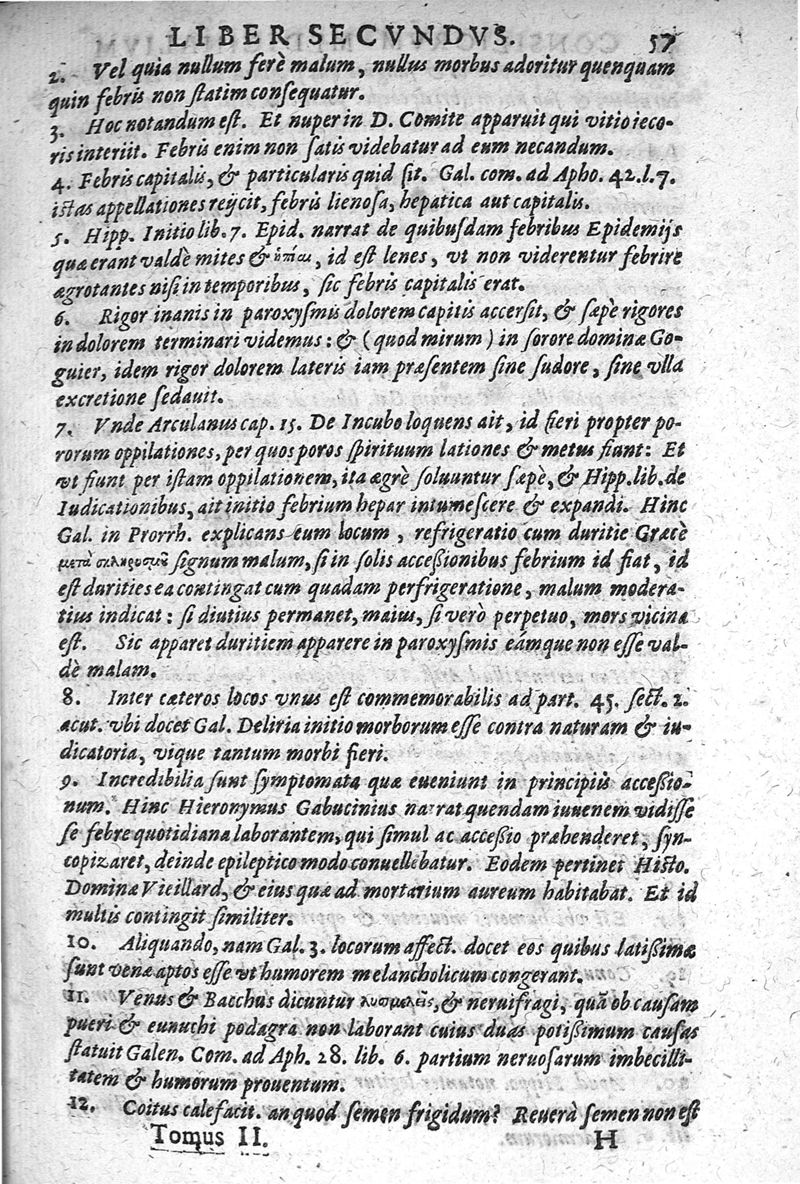 LIBER SECVNDVS. 57
2. Vel quia nullum ferè malum, nullus morbus adoritur quenquam
quin febris non ſtatim conſequatur.
3. Hoc notandum eſt. Et nuper in D. Comite apparuit qui vitio ieco-
ris interiit. Febris enim non ſatis videbatur ad eum necandum.
4. Febris capitalis, & particularis quid ſit. Gal. com. ad Apho. 42. l. 7.
iſtas appellationes reijcit, febris lienoſa, hepatica aut capitalis.
5. Hipp. Initio lib. 7. Epid. narrat de quibuſdam febribus Epidemijs
quæ erant valdè mites & ἤπιαι, id eſt lenes, vt non viderentur febrire
ægrotantes niſi in temporibus, ſic febris capitalis erat.
6. Rigor inanis in paroxyſmis dolorem capitis accerſit, & ſæpè rigores
in dolorem terminari videmus: & (quod mirum) in ſorore dominæ Go-
guier, idem rigor dolorem lateris iam præſentem ſine ſudore, ſine vlla
excretione ſedauit.
7. Vnde Arculanus cap. 15. De Incubo loquens ait, id fieri propter po-
rorum oppilationes, per quos poros ſpirituum lationes & metus fiant: Et
vt fiunt per iſtam oppilationem, ita ægrè ſoluuntur ſæpè, & Hipp. lib. de
Iudicationibus, ait initio febrium hepar intumeſcere & expandi. Hinc
Gal. in Prorrh. explicans eum locum, refrigeratio cum duritie Græcè
μετὰ σκληρυσμοῦ ſignum malum, ſi in ſolis acceßionibus febrium id fiat, id
eſt durities ea contingat cum quadam perfrigeratione, malum modera-
tius indicat: ſi diutius permanet, maius, ſi verò perpetuo, mors vicina
eſt. Sic apparet duritiem apparere in paroxyſmis eámque non eſſe val-
dè malam.
8. Inter cæteros locos vnus eſt commemorabilis ad part. 45. ſect. 2.
acut. vbi docet Gal. Deliria initio morborum eſſe contra naturam & iu-
dicatoria, vique tantum morbi fieri.
9. Incredibilia ſunt ſymptomata quæ eueniunt in principiis acceßio-
num. Hinc Hieronymus Gabucinius narrat quendam iuuenem vidiſſe
ſe febre quotidiana laborantem, qui ſimul ac acceßio præhenderet, ſyn-
copizaret, deinde epileptico modo conuellebatur. Eodem pertinet Hiſto.
Dominæ Vieillard, & eius quæ ad mortarium aureum habitabat. Et id
multis contingit ſimiliter.
10. Aliquando, nam Gal. 3. locorum affect. docet eos quibus latißimæ
ſunt venæ aptos eſſe vt humorem melancholicum congerant.
11. Venus & Bacchus dicuntur λυσιμελεῖς, & neruifragi, quā ob cauſam
pueri & eunuchi podagra non laborant cuius duas potißimum cauſas
ſtatuit Galen. Com. ad Aph. 28. lib. 6. partium neruoſarum imbecilli-
tatem & humorum prouentum.
12. Coitus calefacit. an quod ſemen frigidum? Reuerà ſemen non eſt
Tomus II. H